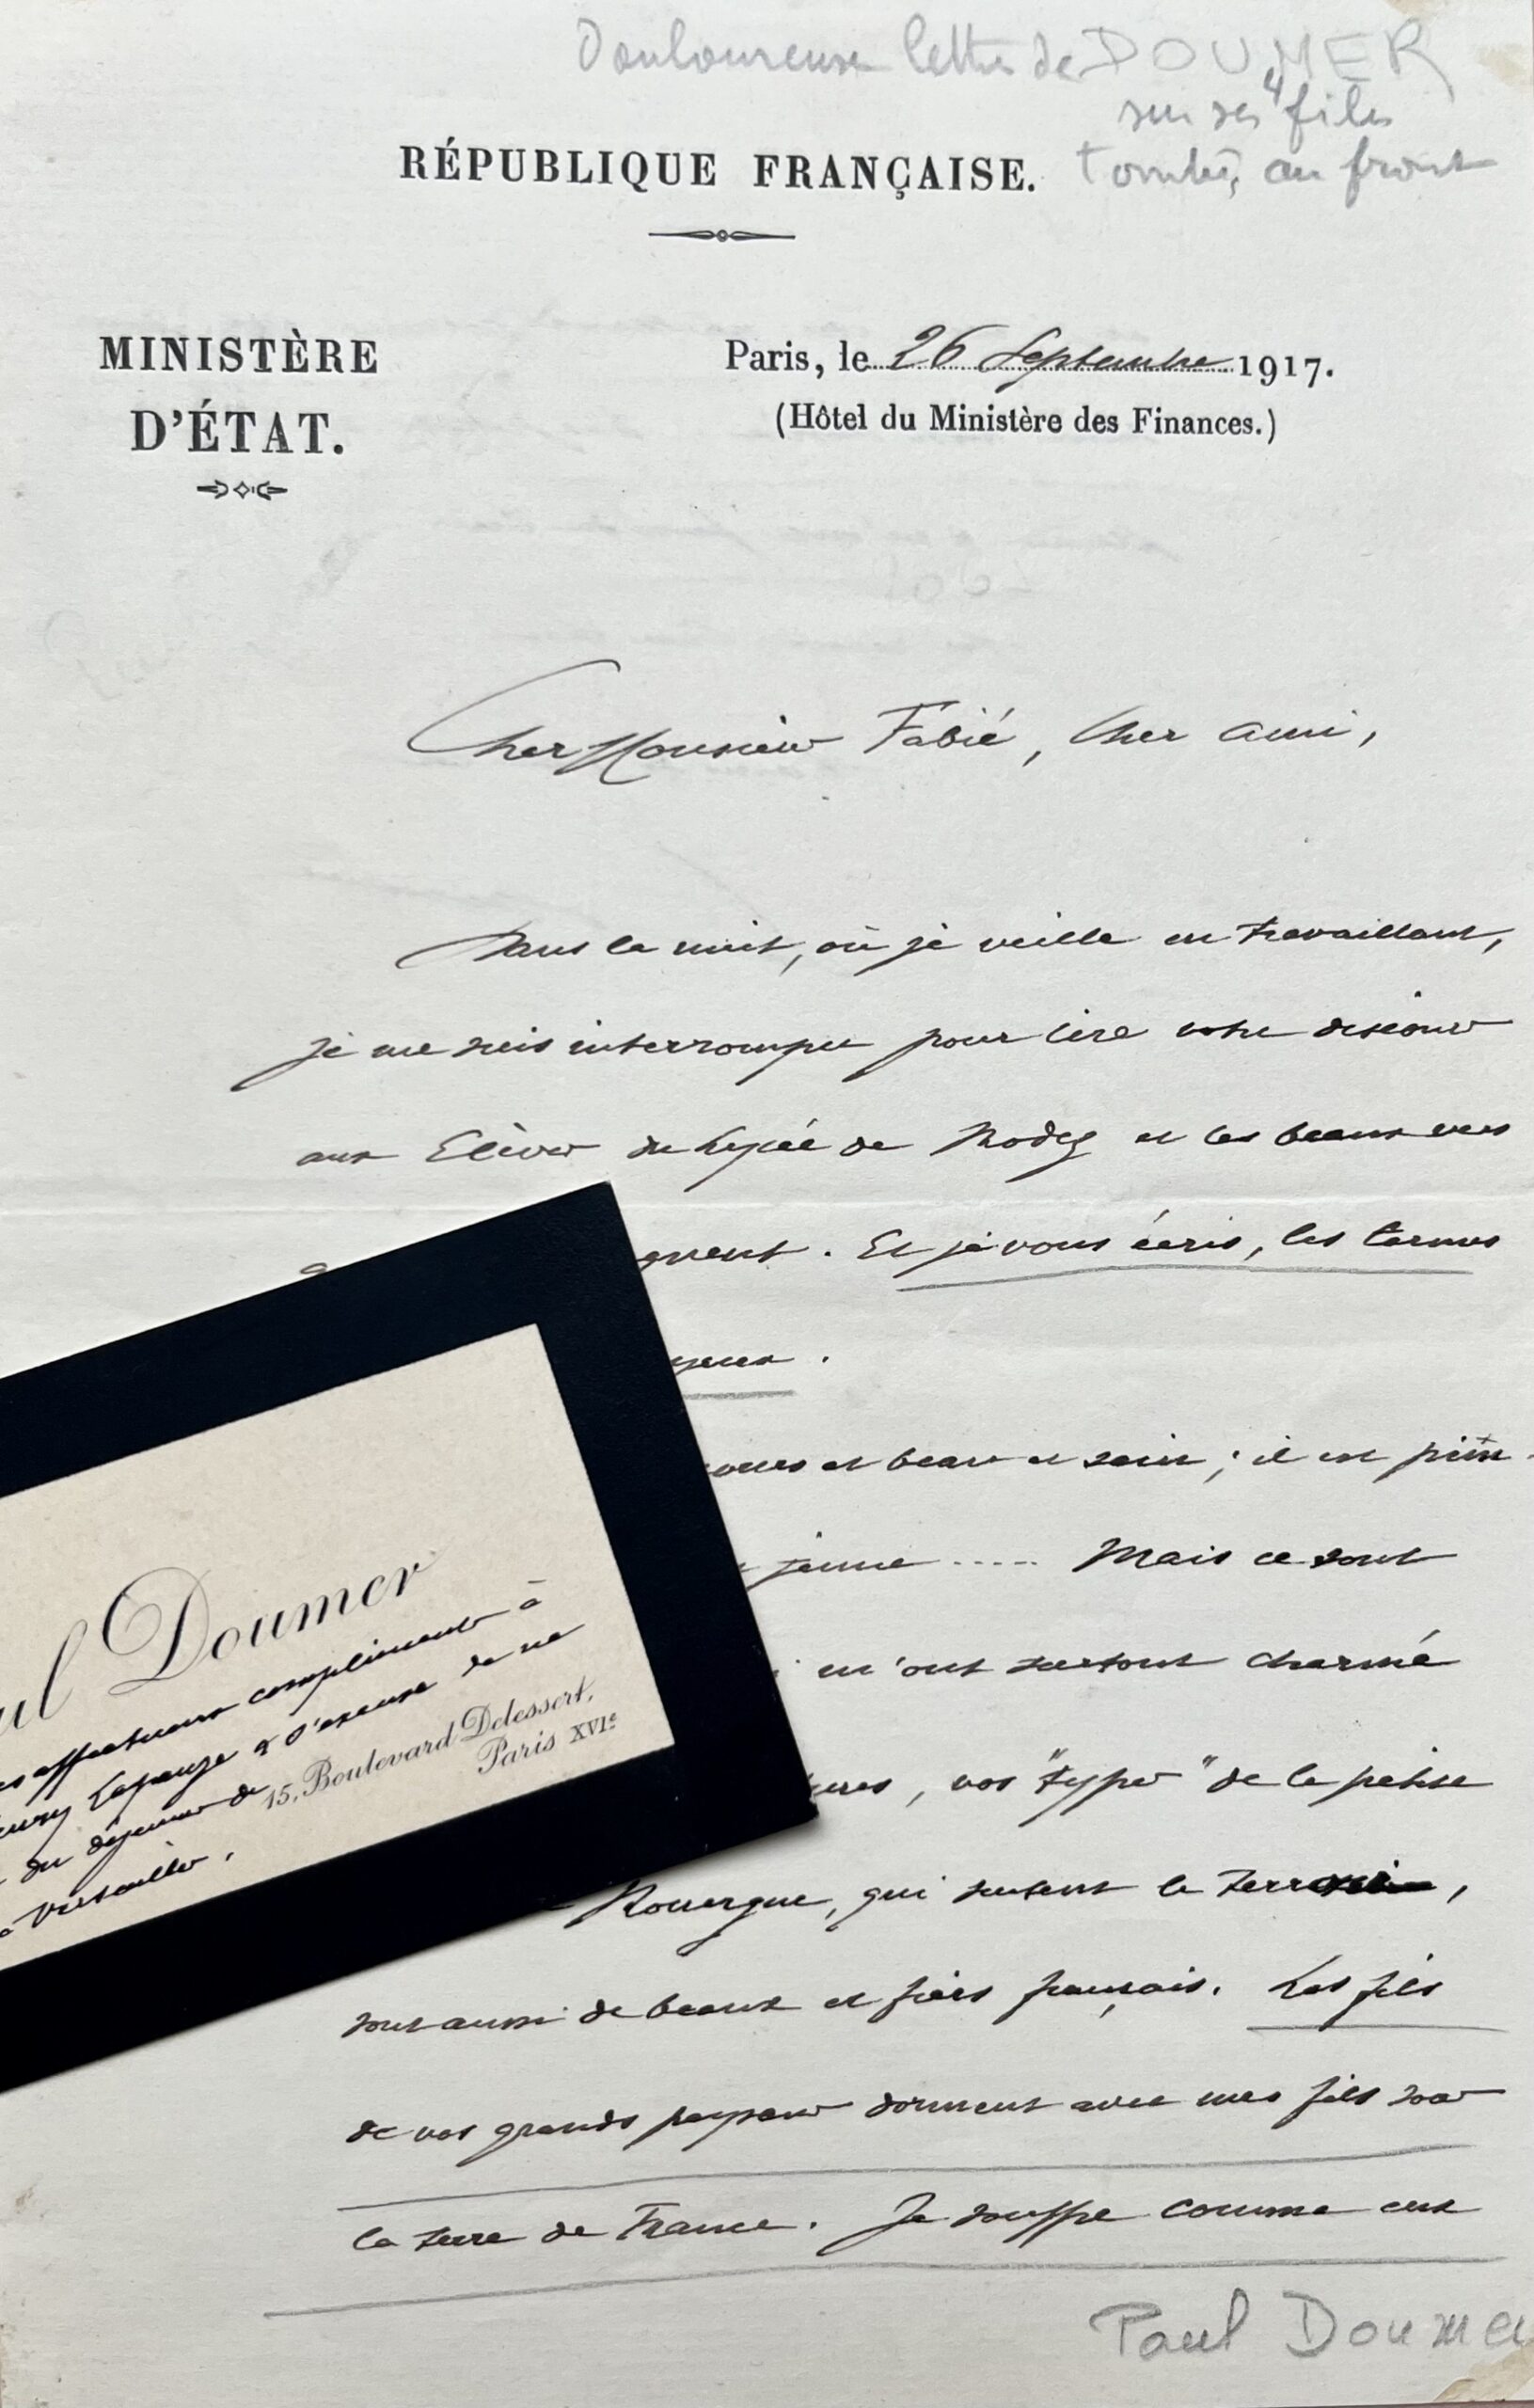 Douloureuse lettre de DOUMER
sur ses 4 fils
tombés au front
RÉPUBLIQUE FRANÇAISE.
MINISTÈRE
D'ÉTAT.
Paris, le 26 Septembre 1917.
(Hôtel du Ministère des Finances.)
Cher Monsieur Fabié, cher ami,
Dans la nuit, où je veille en travaillant,
je me suis interrompu pour lire votre discours
aux Elèves du Lycée de Rodez et les beaux vers
gnent. Et je vous écris, les larmes
yeux.
cours est beau et sain; il est prin-
jeune ..... Mais ce sont
m'ont surtout charmé
, vos "types" de la petite
Rouergue, qui sentent le terroir,
sont aussi de beaux et fiers français. Les fils
de vos grands paysans dorment avec mes fils sous
la terre de France. Je souffre comme eux
Paul Doumer
ul Doumer
es affectueux compliments à
enry Lapauze & s'excuse de ne
du déjeuner de
15, Boulevard Delessert,
Paris XVIe
Versailles.